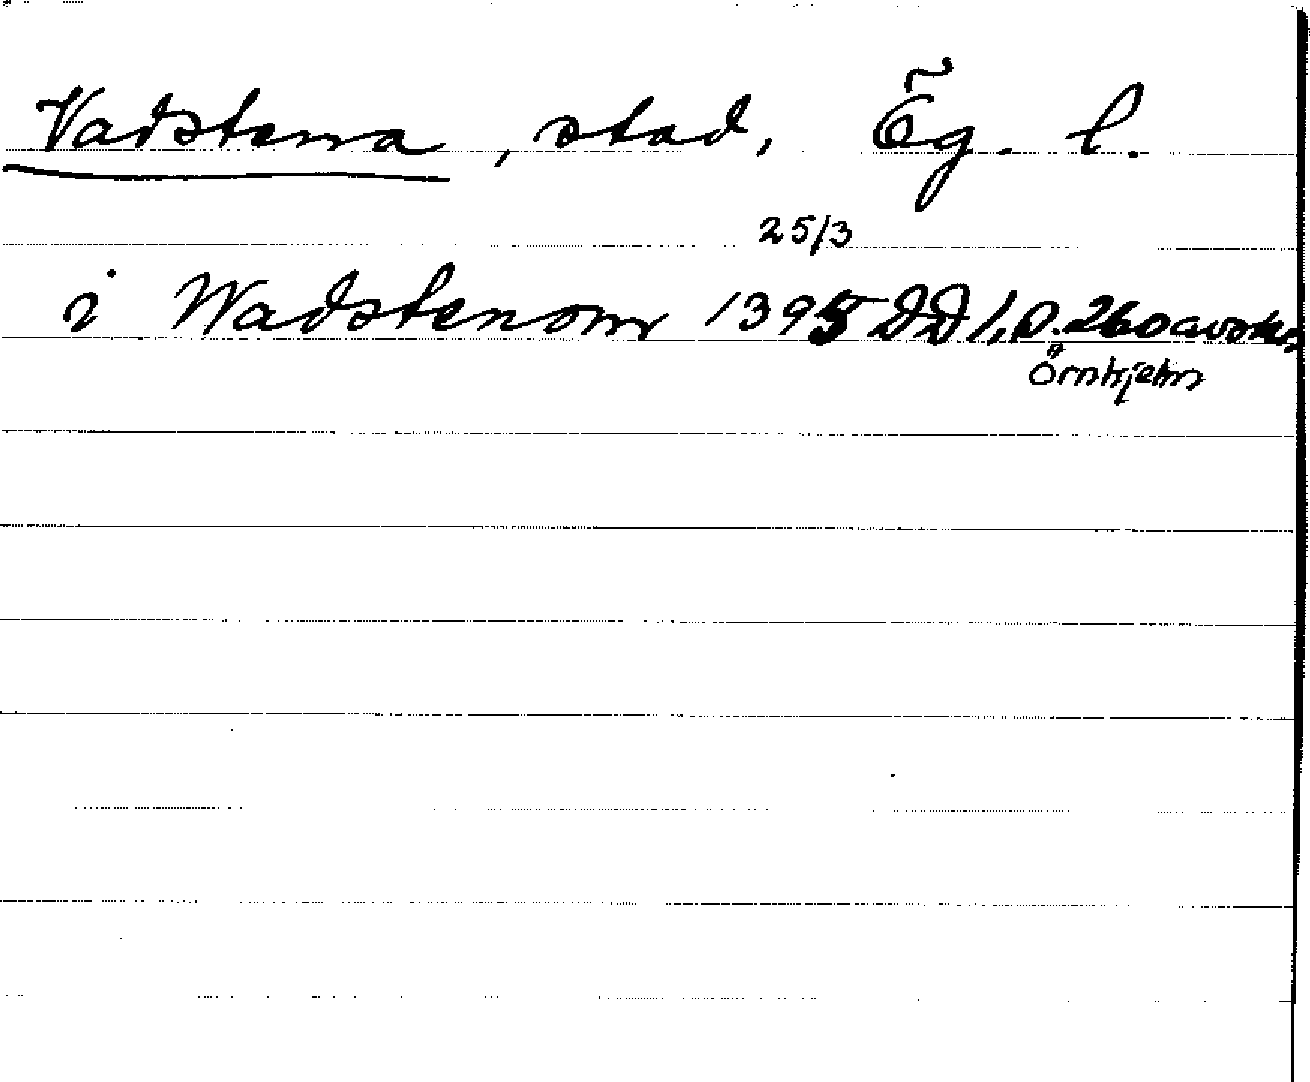 Vadstena, stad, Ög. l.
25/3
i Wadstenom 1395 DD 1, s. 260 avskr
Örnhjelm